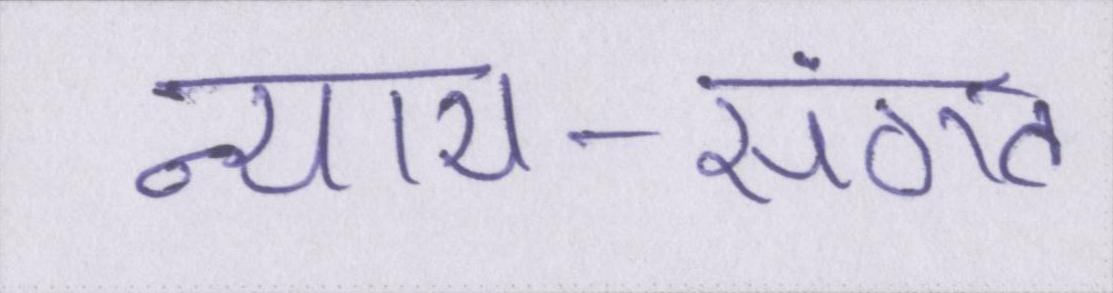 न्याय-संगत